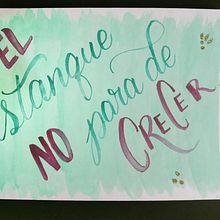 EL
stanque
NO para de
CRECER